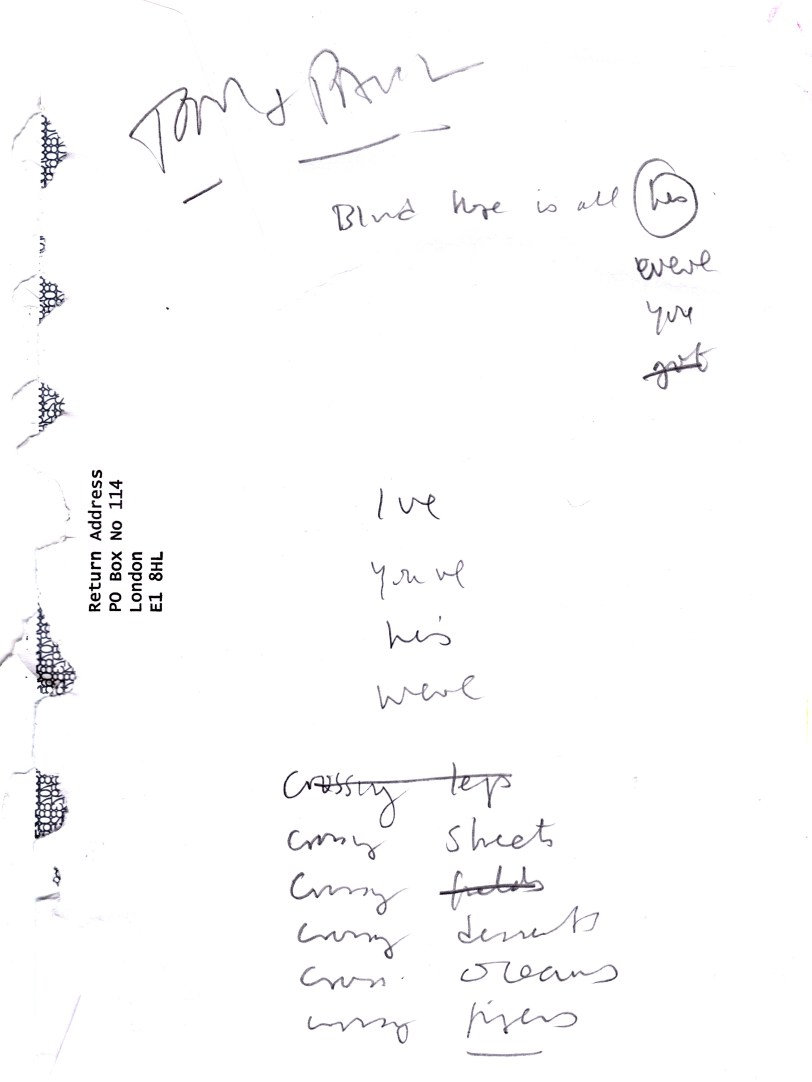 TOM & PAUL
Blind hope is all he's
we've
you
got
Return Address
PO Box No 114
London
E1 8HL
I've
you've
he's
we've
Crossing legs
crossing streets
Crossing fields
crossing deserts
cross. oceans
crossing fingers